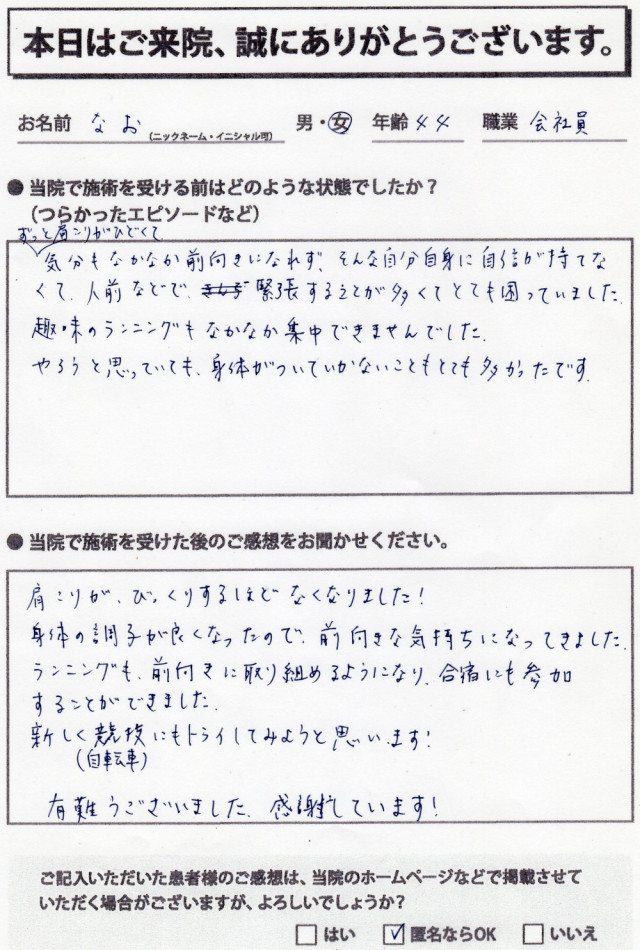 本日はご来院、誠にありがとうございます。
お名前 なお (ニックネーム・イニシャル可) 男・女 年齢 44 職業 会社員
● 当院で施術を受ける前はどのような状態でしたか?
(つらかったエピソードなど)
ずっと肩こりがひどくて
気分もなかなか前向きになれず、そんな自分自身に自信が持てな
くて、人前などで、緊張することが多くてとても困っていました。
趣味のランニングもなかなか集中できませんでした。
やろうと思っていても、身体がついていかないこともとても多かったです。
● 当院で施術を受けた後のご感想をお聞かせください。
肩こりが、びっくりするほどなくなりました!
身体の調子が良くなったので、前向きな気持ちになってきました。
ランニングも、前向きに取り組めるようになり、合宿にも参加
することができました。
新しく競技にもトライしてみようと思います!
(自転車)
有難うございました。感謝しています!
ご記入いただいた患者様のご感想は、当院のホームページなどで掲載させて
いただく場合がございますが、よろしいでしょうか?
□はい ☑匿名ならOK □いいえ